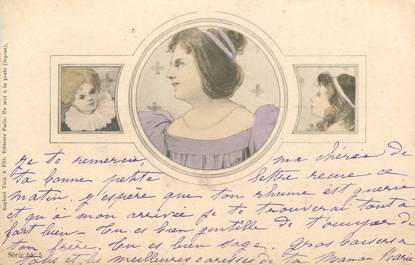 Raphael Tuck & Fils, Editeurs Paris. Un mot à la poste (déposé).
Je te remercie, ma chérie de
ta bonne petite lettre reçue ce
matin. J'espère que ton rhume est guérie
et qu'à mon arrivée je te trouverai tout à
fait bien. Tu es bien gentille de t'occuper de
ton frère. Tu es bien sage. Gros baisers à
tous et les meilleures caresses de ta Maman
Série